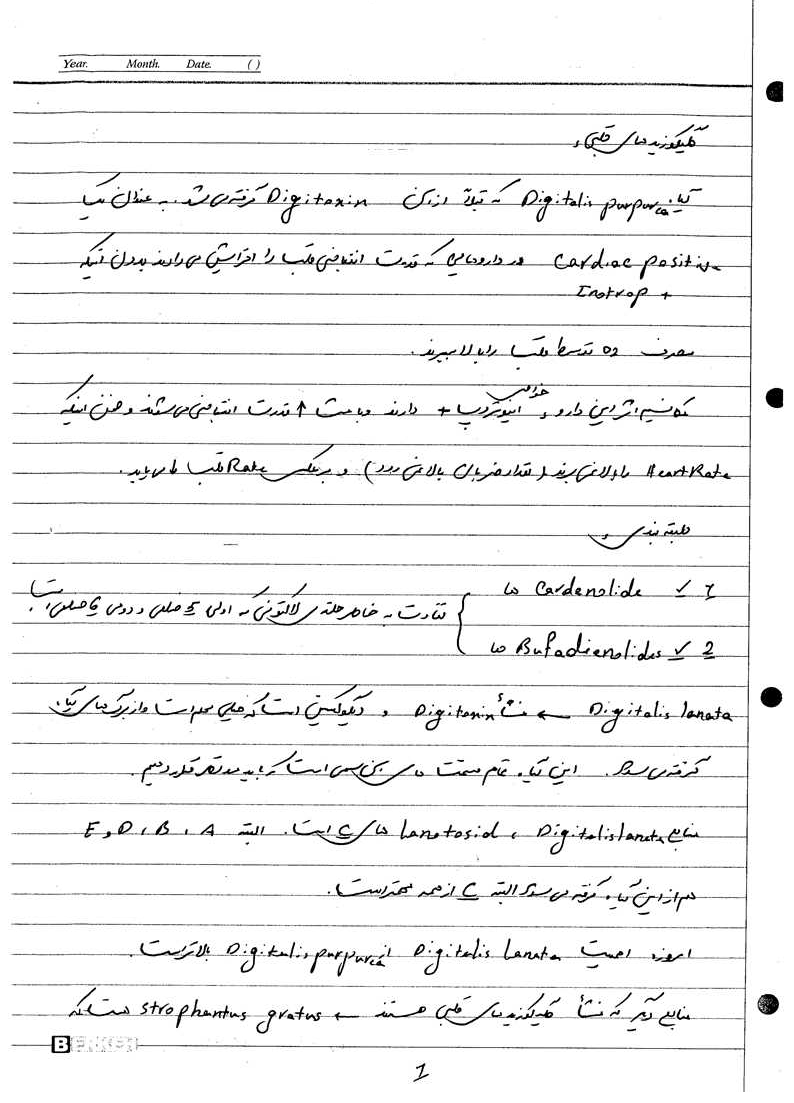 Year. Month. Date. ( )
گلیکوزیدهای قلبی :
گیاه Digitalis purpurea که قبلاً از آن Digitoxin گرفته می‌شد. به عنوان یک
Cardiac positive در داروهایی که قدرت انقباضی قلب را افزایش می‌دهند بدون آنکه
Inotrop +
مصرف O2 توسط قلب را بالا ببرند.
مکانیسم اثر این دارو : خواص اینوتروپ + دارند و باعث ↑ قدرت انقباضی می‌شوند و ضمن اینکه
HeartRate را بالا نمی‌برند (تعداد ضربان بالا نمی‌رود) و برعکس Rate قلب
طبقه بندی :
1 ✓ Cardenolide ها
تفاوت به خاطر حلقه‌ی لاکتونی که اولی 5 ضلعی و دومی 6 ضلعی است.
2 ✓ Bufadienolides ها
Digitalis lanata ← منشأ Digitoxin و دیگوکسین است که خیلی مهم است و از برگ‌های گیاه
گرفته می‌شود. این گیاه تمام قسمت هایش سمی است که باید مد نظر قرار دهیم.
منابع Digitalis lanata ، lanatosid های C است. البته A ، B ، D و E
هم از این گیاه گرفته می‌شود البته C از همه مهمتر است.
امروزه اهمیت Digitalis lanata از Digitalis purpurea بالاتر است.
منابع دیگر که منشأ گلیکوزیدهای قلبی هستند ← strophantus gratus هست که
BERKEH
1